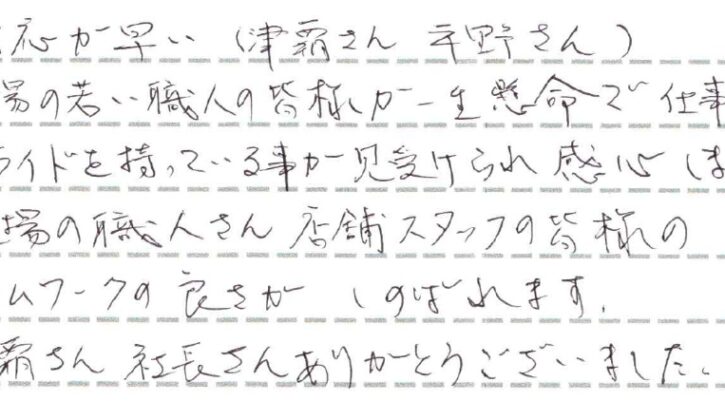 応が早い（津霸さん 平野さん）
場の若い職人の皆様が一生懸命で仕事
ライドを持っている事が見受けられ感心しま
場の職人さん 店舗スタッフの皆様の
ムワークの良さが しのばれます.
霸さん 社長さんありがとうございました。